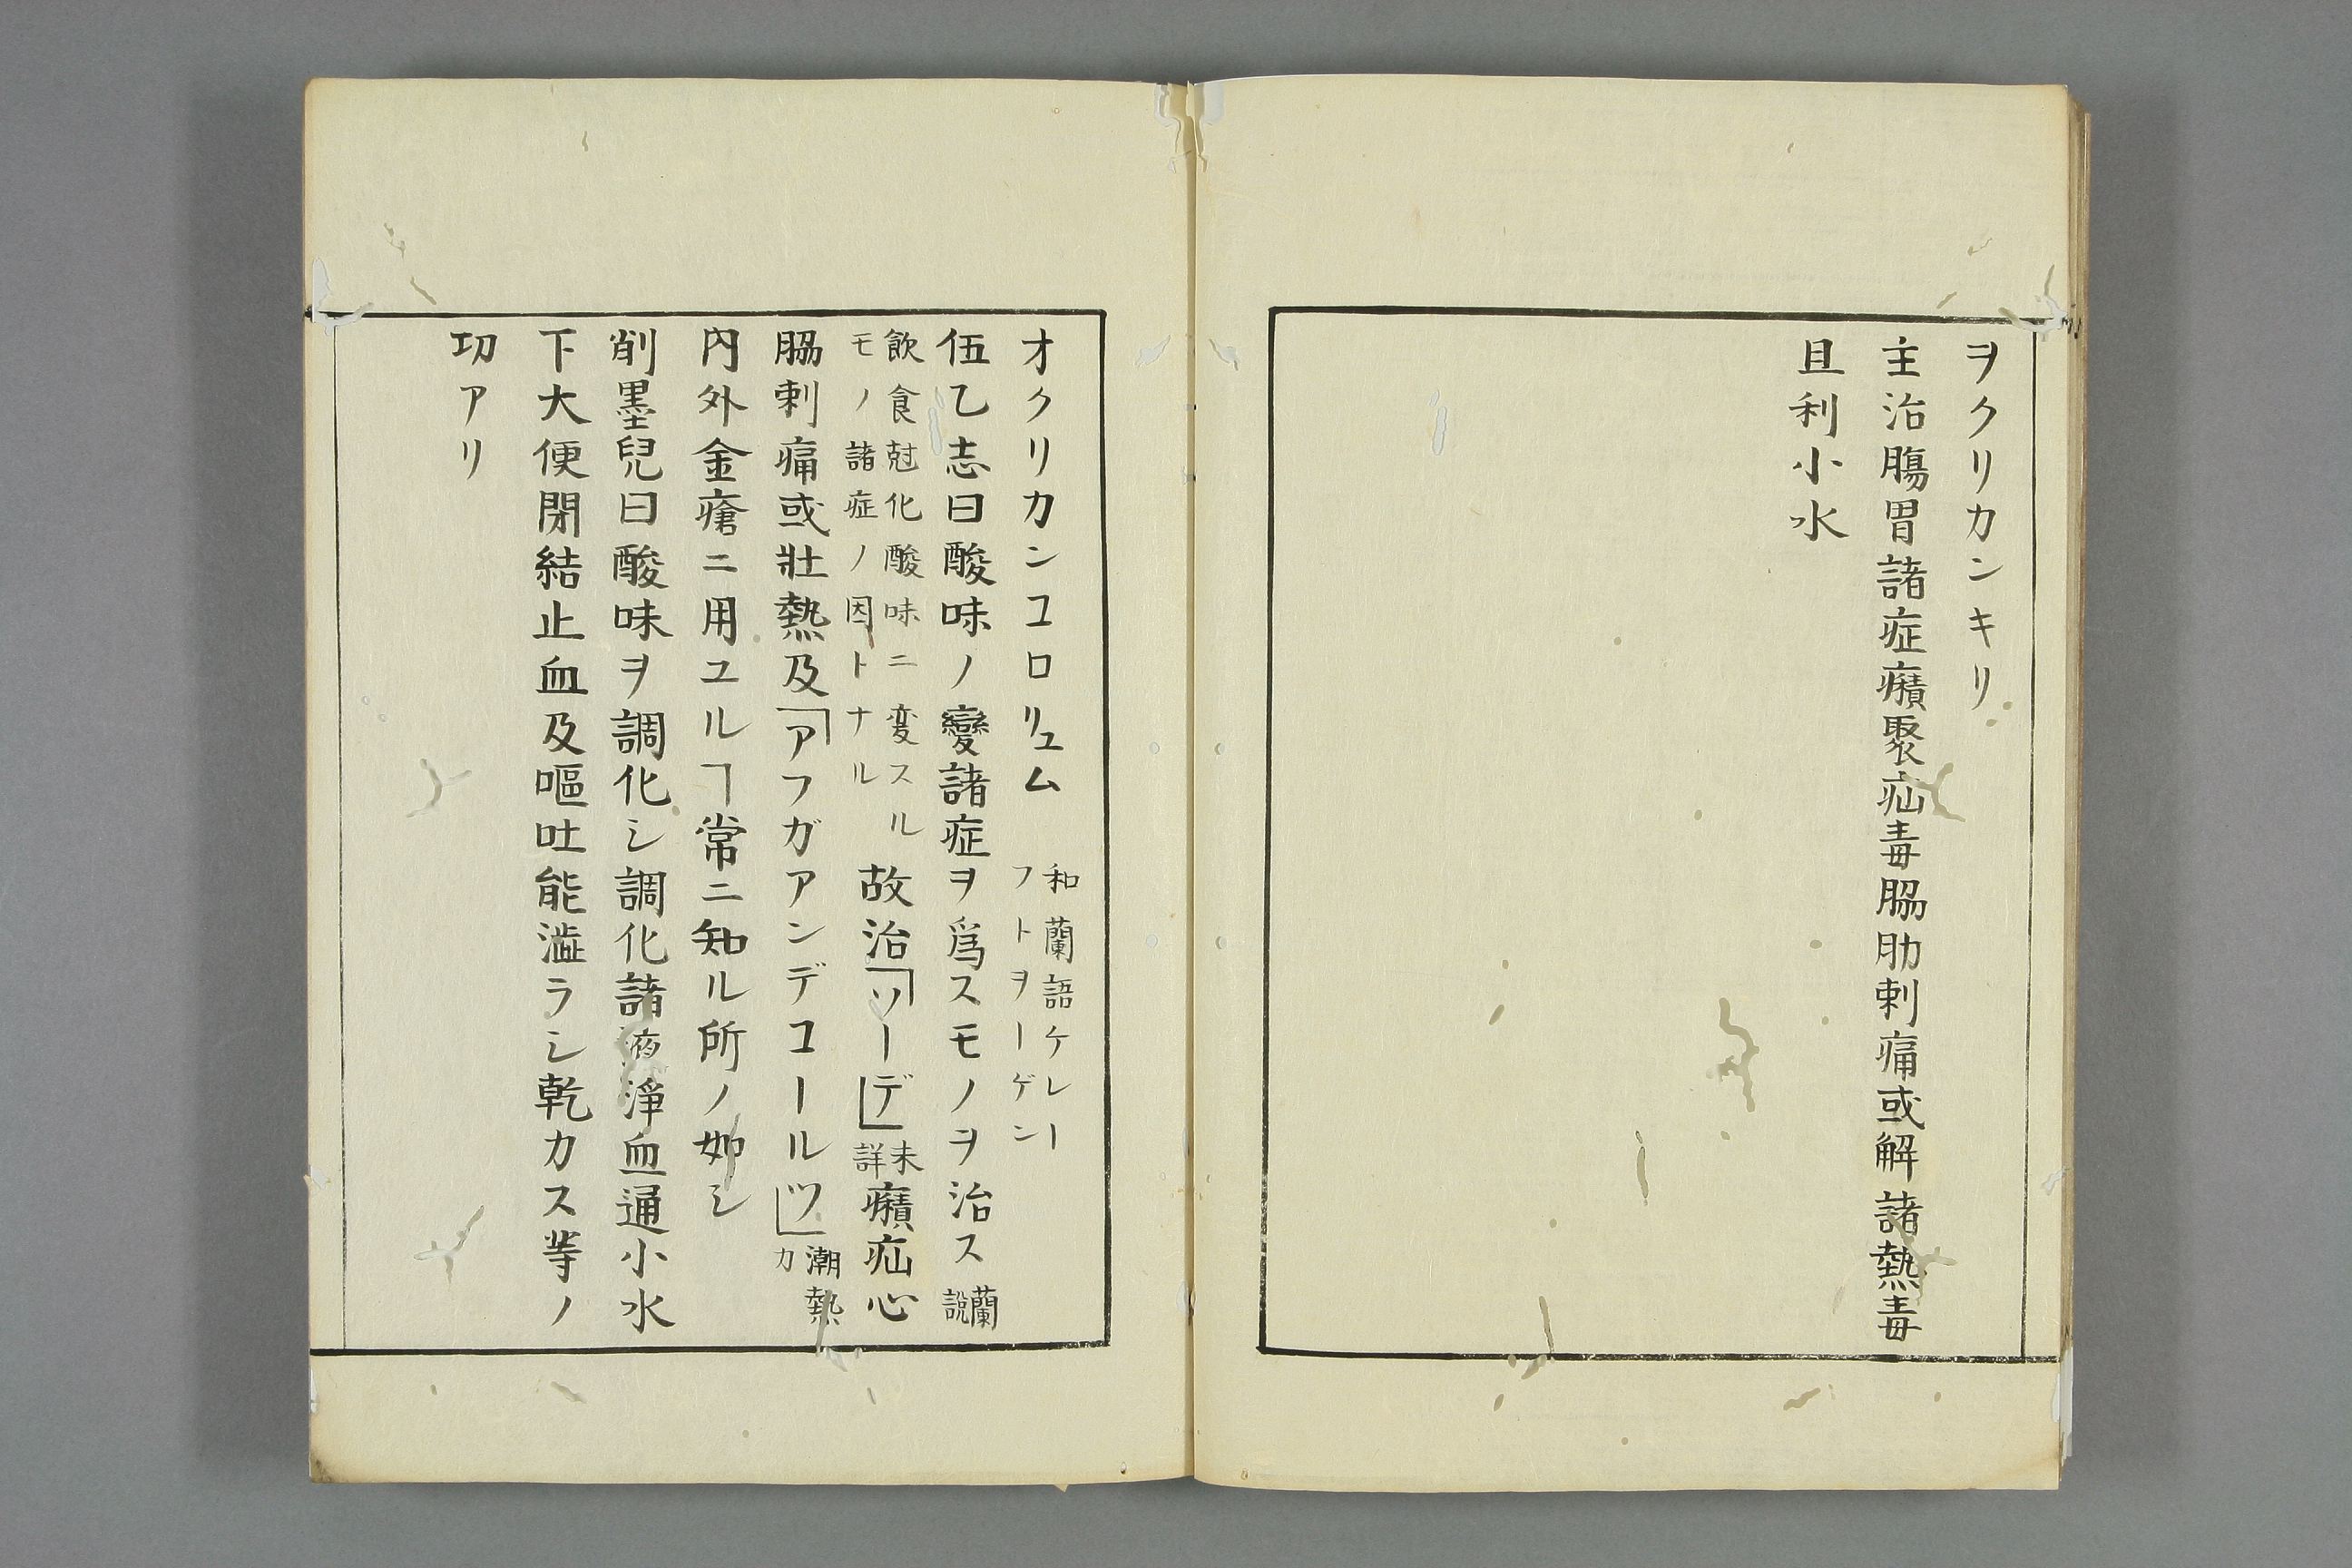 ヲクリカンキリ
主治膓胃諸症癪聚疝毒脇肋刺痛或解諸熱毒
且利小水
オクリカンコロリュム 和蘭語ケレー
フトヲーゲン
伍乙志曰酸味ノ變諸症ヲ爲スモノヲ治ス 蘭
說
飲食尅化酸味ニ変スル
モノ諸症ノ因トナル
故治「ソーデ」 未
詳
癪疝心
脇刺痛或壯熱及「アフガアンデコールツ」 潮熱
カ
内外金瘡ニ用ユルヿ常ニ知ル所ノ如シ
削墨兒曰酸味ヲ調化シ調化諸液淨血通小水
下大便閉結止血及嘔吐能澁ラシ乾カス等ノ
功アリ